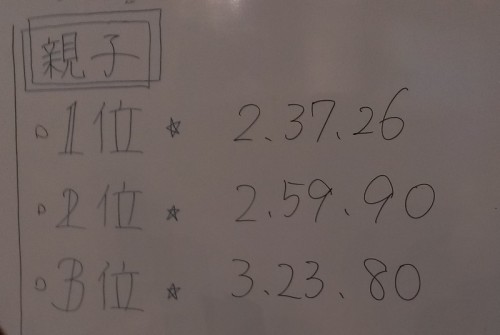 親子
1位 ☆ 2.37.26
2位 ☆ 2.59.90
3位 ☆ 3.23.80